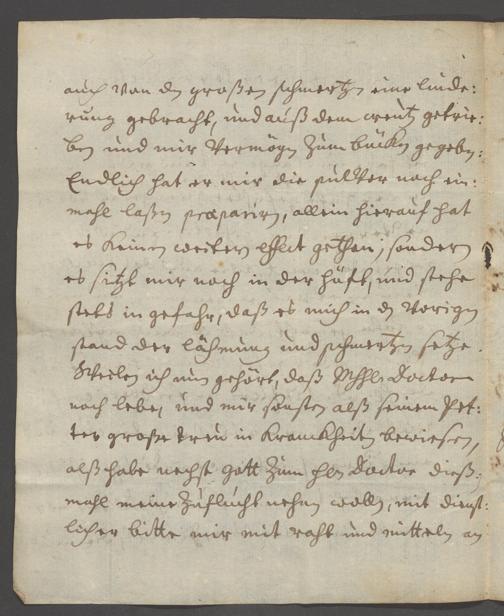 auch von dn großen schmertzn eine linde:
rung gebracht, und auß dem creutz getrie:
ben und mir vermögn zum bückn gegebn:
Endlich hat er mir die pulver noch ein:
mahl laßen præpariren, allein hierauf hat
es keinen weitern effect gethan; sondern
es sitzt mir noch in der hüfft, und stehe
stets in gefahr, daß es mich in dn vorign
stand der lähmung und schmertzn setze.
Weilen ich nun gehört, daß Doctor
noch lebe, und mir sonsten alß seinem Vet:
ter große treu in Kranckheitn bewiesen,
alß habe nechst gott zum hln Doctor dieß:
mahl meine Zuflucht nehmn wolln, mit dienst:
licher bitte mir mit raht und mitteln an